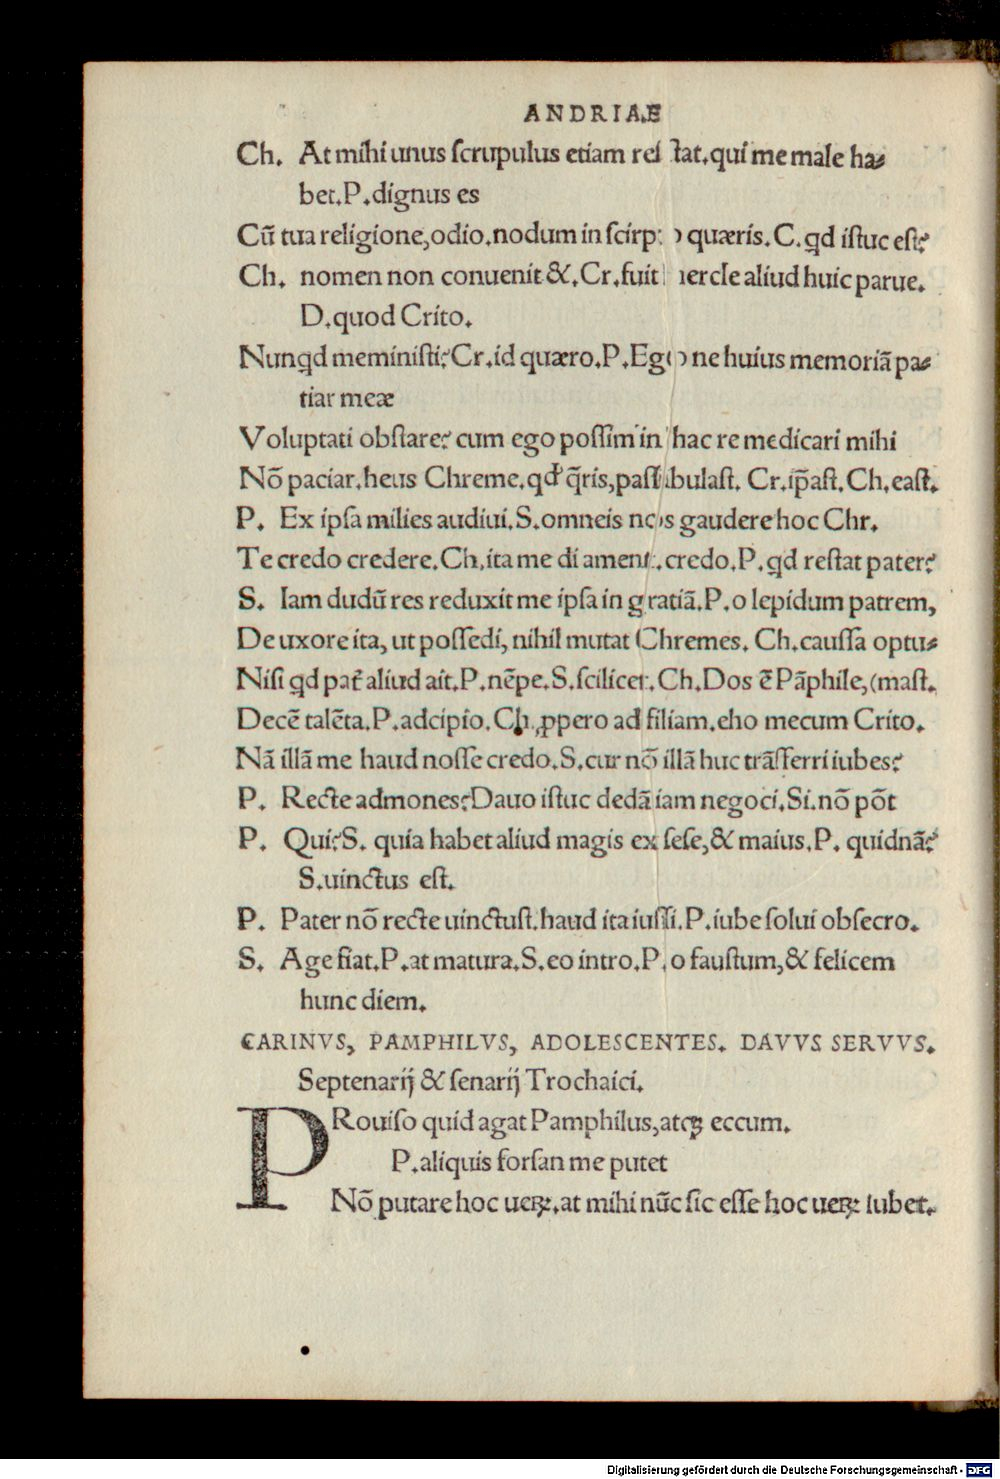 ANDRIAE
Ch. At mihi unus ſcrupulus etiam reſtat.qui me male ha⸗
bet.P.dignus es
Cū tua religione,odio.nodum in ſcirpo quæris.C.qd iſtuc eſt?
Ch. nomen non conuenit &.Cr.fuit hercle aliud huic paruæ.
D.quod Crito.
Nunqd meminiſti?Cr.id quæro.P.Ego ne huius memoriā pa⸗
tiar meæ
Voluptati obſtare? cum ego poſſim in hac re medicari mihi
Nō paciar.heus Chreme.qd q̄ris,paſſibulaſt. Cr.ip̄aſt.Ch.eaſt.
P. Ex ipſa milies audiui.S.omneis nos gaudere hoc Chr.
Te credo credere.Ch.ita me di ament.credo.P.qd reſtat pater?
S. Iam dudū res reduxit me ipſa in gratiā.P.o lepidum patrem,
De uxore ita, ut poſſedi, nihil mutat Chremes. Ch.cauſſa optu⸗
Niſi qd pat̄ aliud ait.P.nēpe.S.ſcilicet.Ch.Dos ē Pāphile,(maſt.
Decē talēta.P.adcipio.Ch.ꝓpero ad filiam.eho mecum Crito.
Nā illā me haud noſſe credo.S.cur nō illā huc trāſferri iubes?
P. Recte admones?Dauo iſtuc dedā iam negoci.Si.nō pōt
P. Qui?S. quia habet aliud magis ex ſeſe,& maius.P. quidnā?
S.uinctus eſt.
P. Pater nō recte uinctuſt.haud ita iuſſi.P.iube ſolui obſecro.
S. Age fiat.P.at matura.S.eo intro.P.o fauſtum,& felicem
hunc diem.
CARINVS, PAMPHILVS, ADOLESCENTES. DAVVS SERVVS.
Septenarij & ſenarij Trochaici.
PRouiſo quid agat Pamphilus,atqꝫ eccum.
P.aliquis forſan me putet
Nō putare hoc ueꝝ.at mihi nūc ſic eſſe hoc ueꝝ lubet.
Digitalisierung gefördert durch die Deutsche Forschungsgemeinschaft - DFG